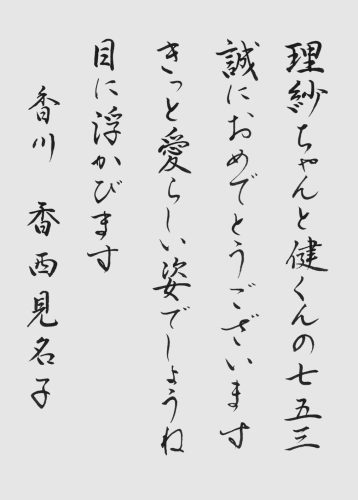 理紗ちゃんと健くんの七五三
誠におめでとうございます
きっと愛らしい姿でしょうね
目に浮かびます
香川　香西見名子